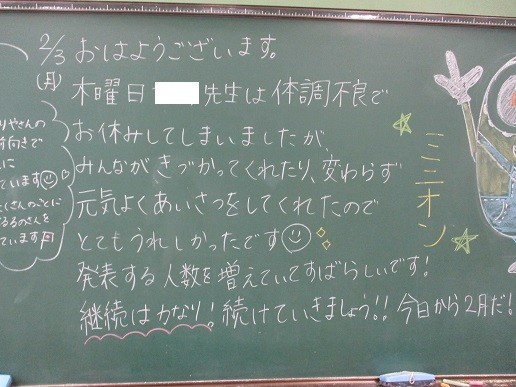 2/3 おはようございます。
(月) 木曜日 先生は体調不良で
お休みしてしまいましたが、
みんながきづかってくれたり、変わらず
元気よくあいさつをしてくれたので
とてもうれしかったです
発表する人数を増えていてすばらしいです!
継続は力なり! 続けていきましょう!! 今日から2月だ!
ミニオン
りやさんの
前向きで
に
ています
くさんのことに
るるのさんを
ています